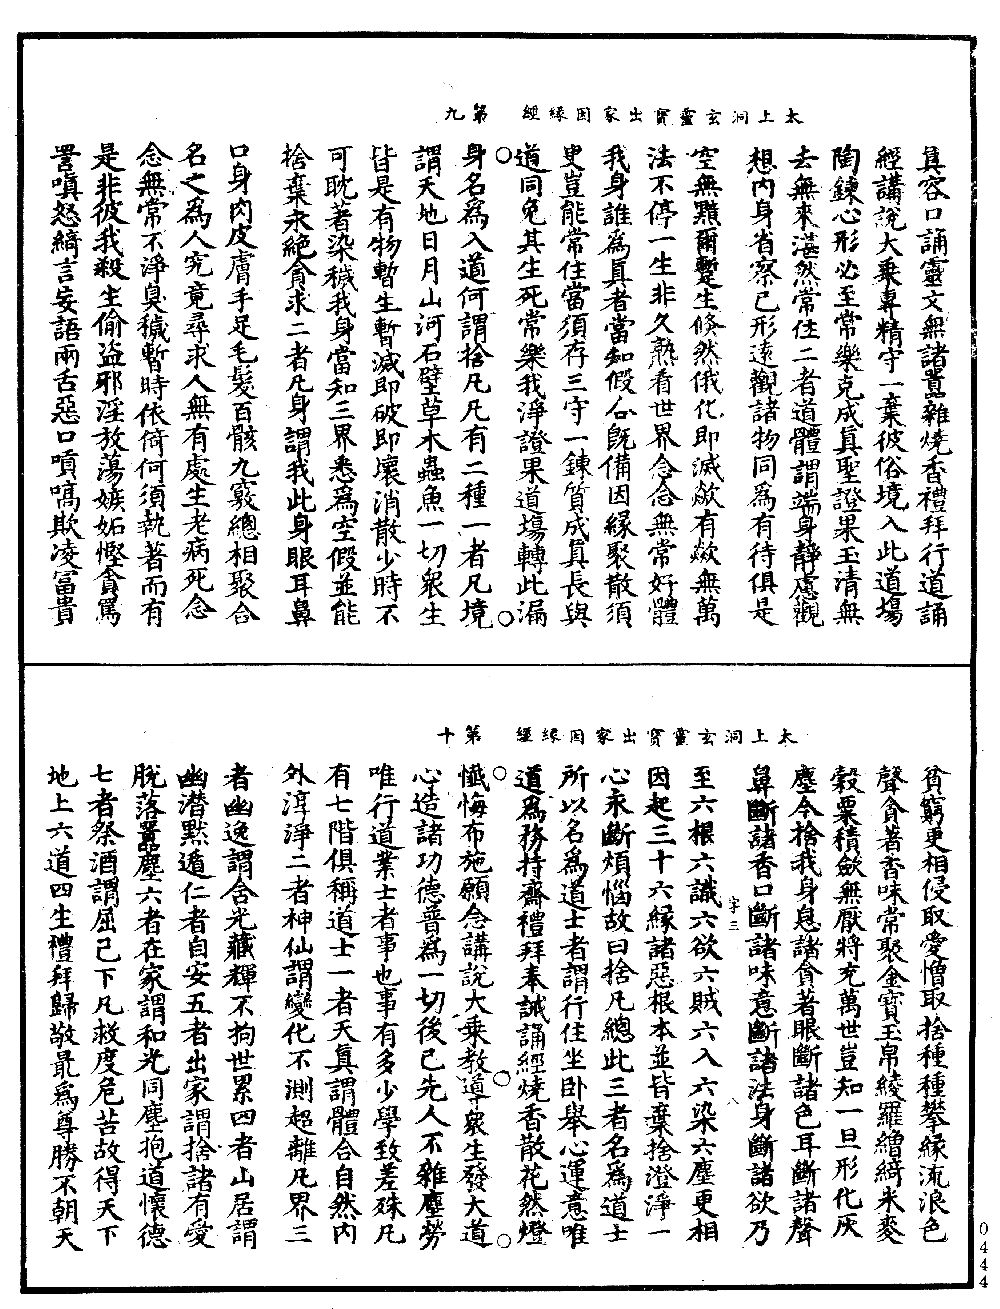 太上洞玄靈寶出家因緣經　第九
真容口誦靈文無諸躡雜燒香禮拜行道誦
經講說大乘專精守一棄彼俗境入此道場
陶鍊心形必至常樂克成真聖證果玉清無
去無來湛然常住二者道體謂端身靜慮觀
想內身省察己形遠觀諸物同為有待俱是
空無顯爾蹔生倏然俄化即滅歘有歘無萬
法不停一生非久熟看世界念念無常好體
我身誰為真者當知假合既備因緣聚散須
臾豈能常住當須存三守一鍊質成真長與
道同免其生死常樂我淨證果道場轉此漏
身名為入道何謂捨凡凡有二種一者凡境
謂天地日月山河石壁草木蟲魚一切衆生
皆是有物暫生暫滅即破即壞消散少時不
可耽著染穢我身當知三界悉為空假並能
捨棄永絕貪求二者凡身謂我此身眼耳鼻
口身肉皮膚手足毛髮百骸九竅總相聚合
名之為人究竟尋求人無有處生老病死念
念無常不淨臭穢暫時依倚何須執著而有
是非彼我殺生偷盜邪淫放蕩嫉妬慳貪罵
詈嗔怒綺言妄語兩舌惡口嗔嗃欺凌冨貴
太上洞玄靈寶出家因緣經　第十
貧窮更相侵取愛憎取捨種種攀緣流浪色
聲貪著香味常聚金寶玉帛綾羅繒綺米麥
穀粟積斂無厭將充萬世豈知一旦形化灰
塵今捨我身息諸貪著眼斷諸色耳斷諸聲
鼻斷諸香口斷諸味意斷諸法身斷諸欲乃
字三　八
至六根六識六欲六賊六入六染六塵更相
因起三十六緣諸惡根本並皆棄捨澄淨一
心永斷煩惱故曰捨凡總此三者名為道士
所以名為道士者謂行住坐卧舉心運意唯
道為務持齋禮拜奉誡誦經燒香散花然燈
懺悔布施願念講說大乘教導衆生發大道
心造諸功德普為一切後己先人不雜塵勞
唯行道業士者事也事有多少學致差殊凡
有七階俱稱道士一者天真謂體合自然內
外淳淨二者神仙謂變化不測超離凡界三
者幽逸謂含光藏輝不拘世累四者山居謂
幽潛默遁仁者自安五者出家謂捨諸有愛
脫落囂塵六者在家謂和光同塵抱道懷德
七者祭酒謂屈己下凡救度危苦故得天下
地上六道四生禮拜歸敬最為尊勝不朝天
0444